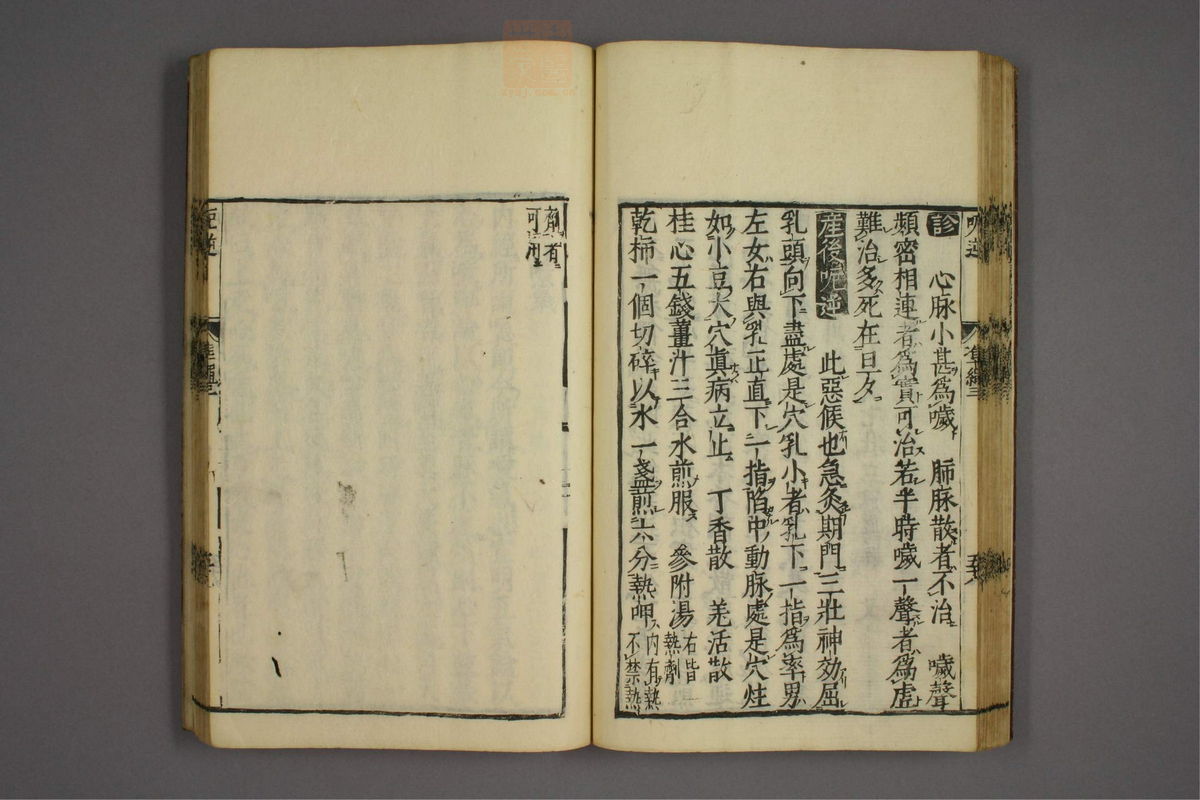 診　心脉小甚爲噦　肺脉散者不治　噦聲
頻密相連者爲實可治若半時噦一聲者爲虛
難治多死在旦夕
産後呃逆　此惡候也急灸期門三壯神効屈
乳頭向下盡處是穴乳小者乳下一指爲率男
左女右與乳正直下一指陷中動脉處是穴炷
如小豆大穴眞病立止　丁香散　羌活散
桂心五錢薑汁三合水煎服　參附湯右皆熱劑
乾柿一個切碎以水一盞煎六分熱呷内有熱不禁熱
劑者可用